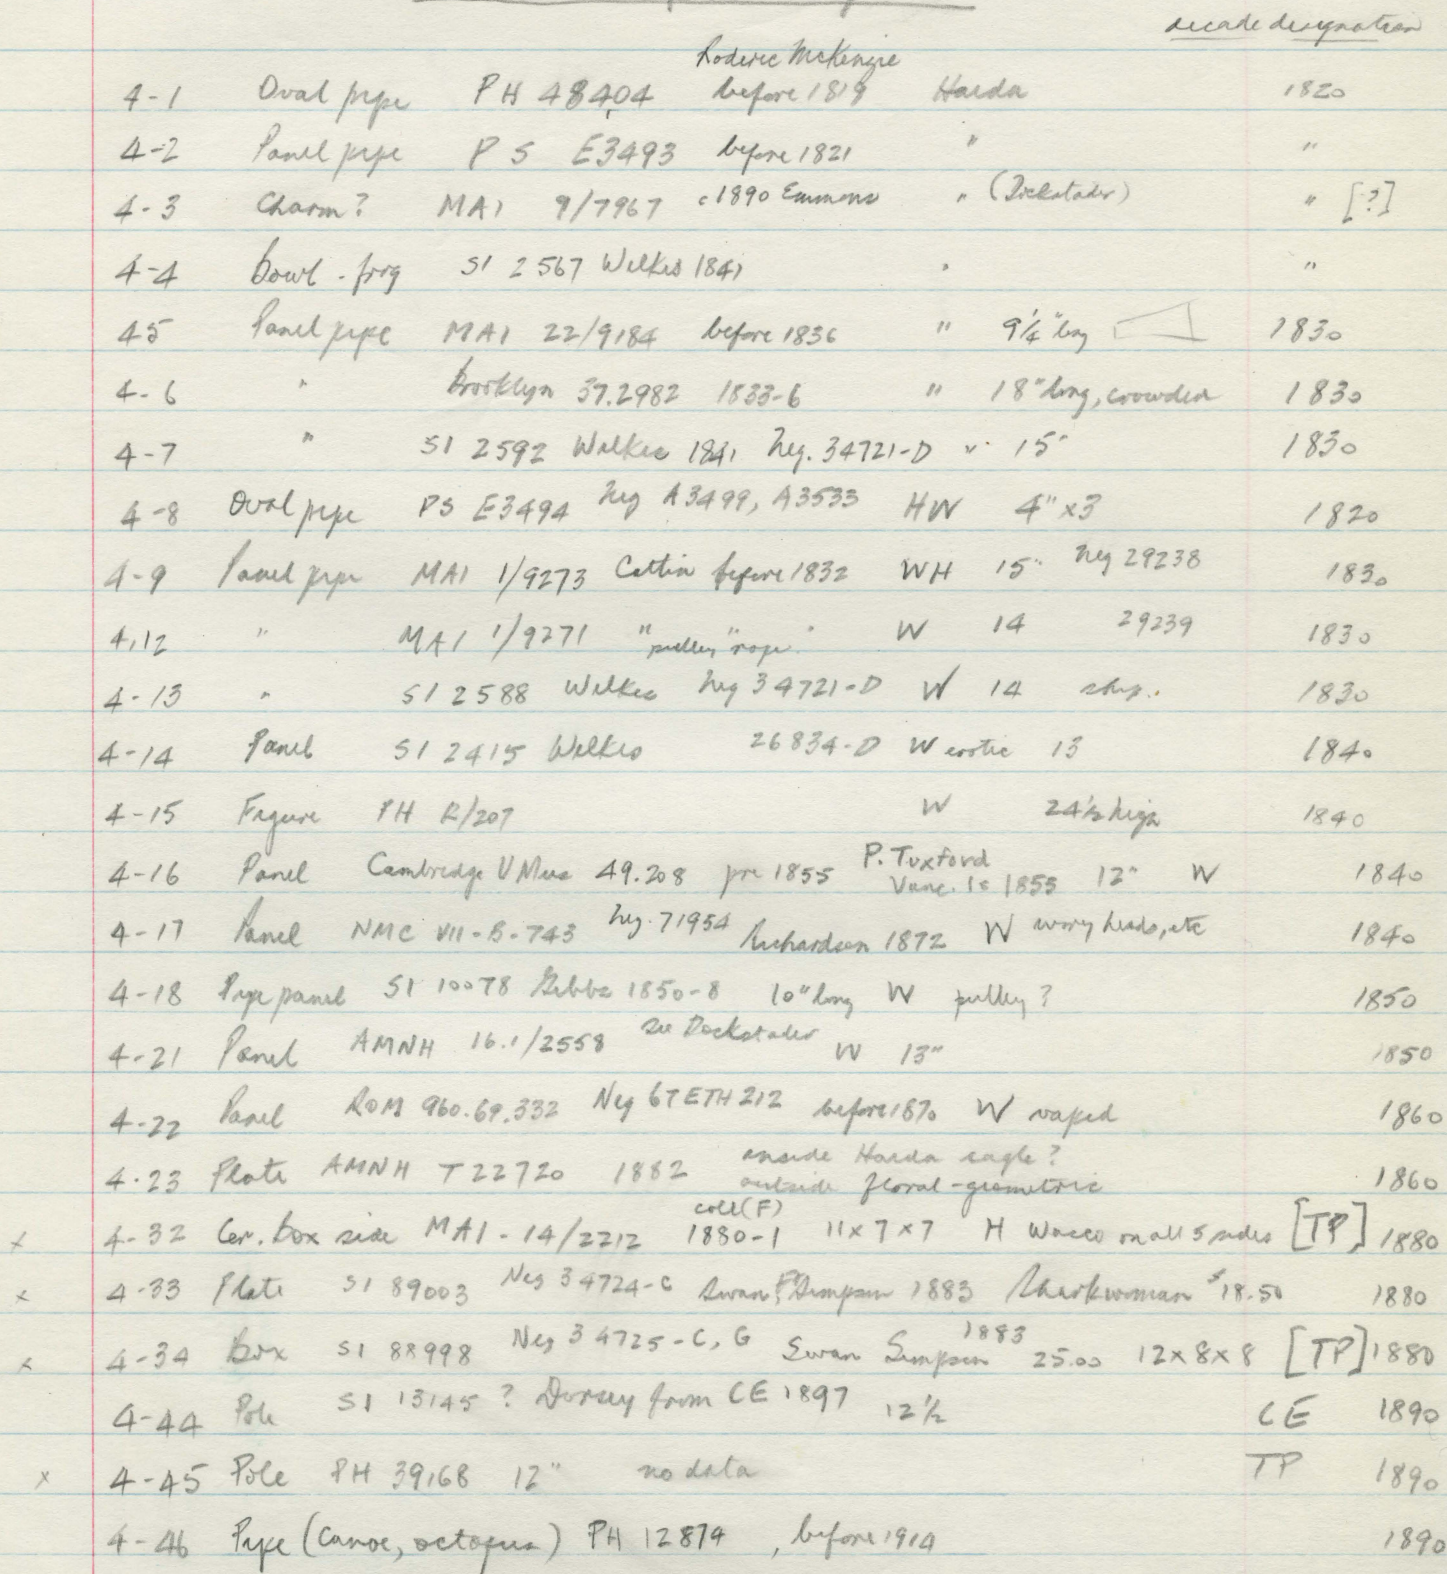 decade designation
Roderic McKenzie
4-1 Oval pipe PH 48404 before 1819 Haida 1820
4-2 Panel pipe PS E3493 before 1821 " "
4-3 Charm? MAI 9/7967 c1890 Emmons " (Dockstader) " [?]
4-4 bowl - frog SI 2567 Wilkes 1841 " "
45 Panel pipe MAI 22/9184 before 1836 " 9¼" long 1830
4-6 " Brooklyn 37.2982 1833-6 " 18" long, crowded 1830
4-7 " SI 2592 Wilkes 1841 Neg. 34721-D " 15" 1830
4-8 Oval pipe PS E3494 Neg A3499, A3533 HW 4" x3 1820
4-9 Panel pipe MAI 1/9273 Catlin before 1832 WH 15" Neg 29238 1830
4,12 " MAI 1/9271 "pulley" rope W 14 29239 1830
4-13 " SI 2588 Wilkes Neg 34721-D W 14 ship. 1830
4-14 Panel SI 2415 Wilkes 26834-D W erotic 13 1840
4-15 Figure PH R/207 W 24½ high 1840
4-16 Panel Cambridge U Mus 49.208 pre 1855 P. Tuxford Vanc. Is 1855 12" W 1840
4-17 Panel NMC VII-B-743 Neg. 71954 Richardson 1872 W ivory heads, etc 1840
4-18 Pipe panel SI 10078 Gibbs 1850-8 10" long W pulley? 1850
4-21 Panel AMNH 16.1/2558 see Dockstader W 13" 1850
4-22 Panel ROM 960.69.332 Neg 67ETH212 before 1870 W 1860
4.23 Plate AMNH T22720 1882 inside Haida eagle? outside floral-geometric 1860
x 4-32 Cer. box side MAI - 14/2212 coll(F) 1880-1 11x7x7 H Wasco on all 5 sides [TP] 1880
x 4-33 Plate SI 89003 Neg 34724-C Swan, Simpson 1883 Sharkwoman $18.50 1880
x 4-34 Box SI 88998 Neg 34725-C, G Swan Simpson 1883 25.00 12x8x8 [TP] 1880
4-44 Pole SI 13145 ? Dorsey from CE 1897 12½ CE 1890
x 4-45 Pole PH 39168 12" no data TP 1890
4-46 Pipe (Canoe, octopus) PH 12874, before 1914 1890